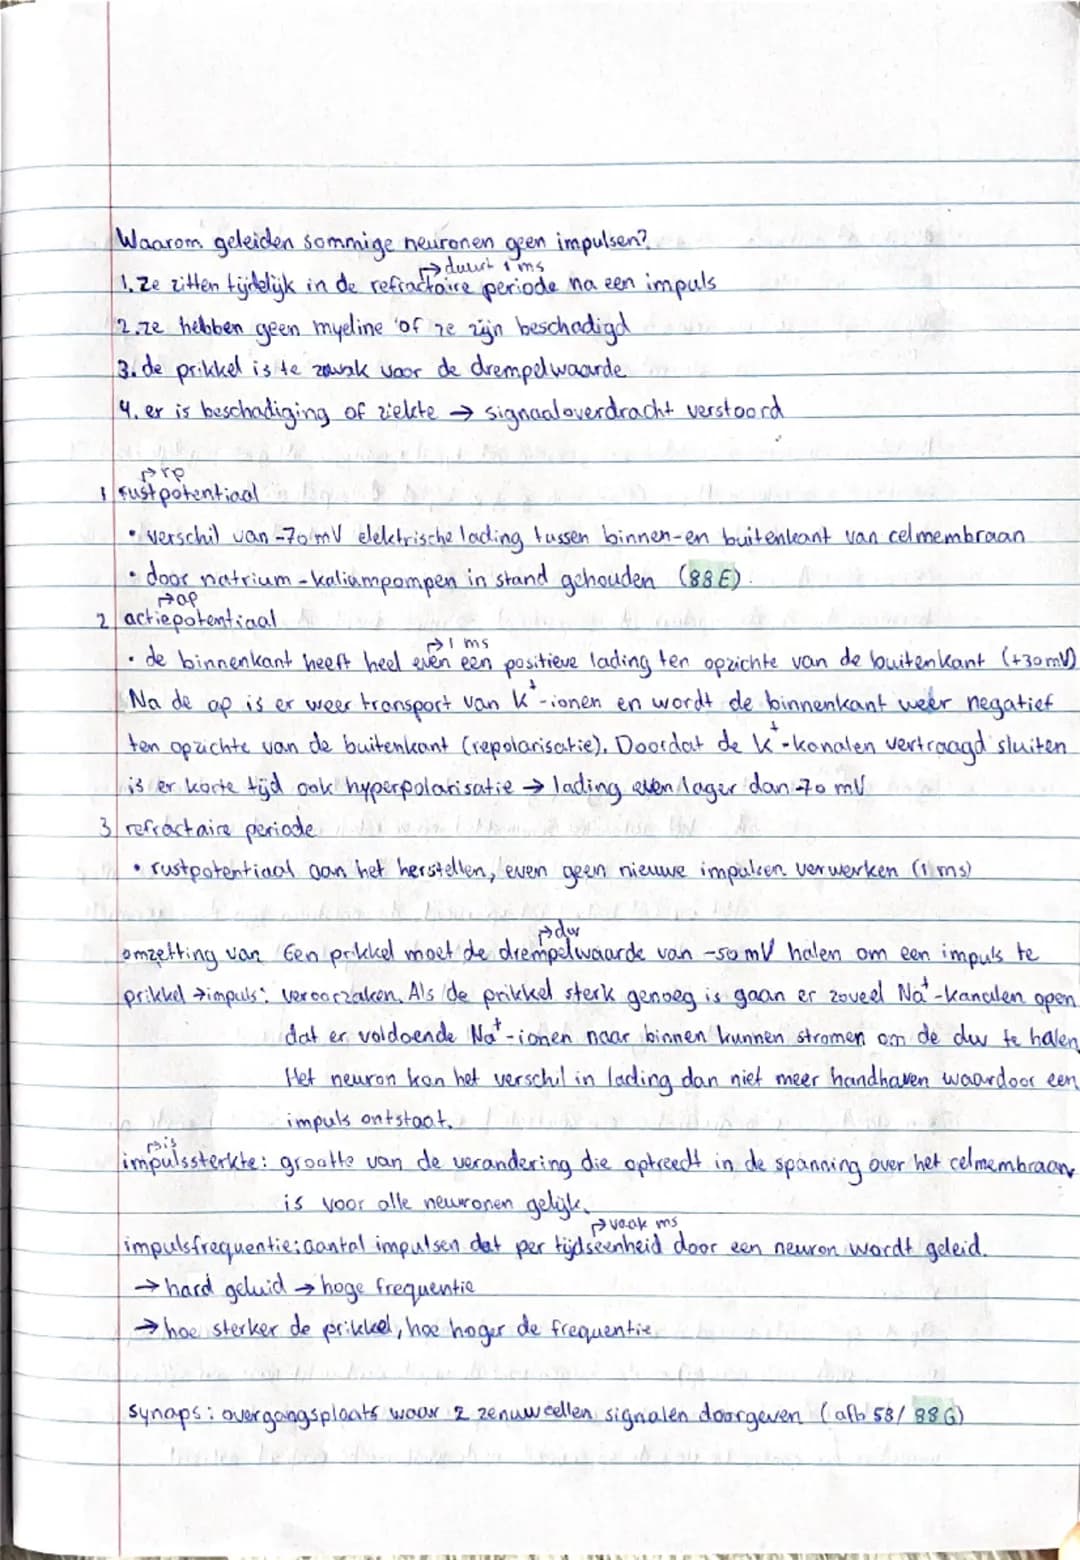 Waarom geleiden sommige neuronen geen impulsen?
↱ duurt 1 ms
1. Ze zitten tijdelijk in de refractaire periode na een impuls
2. ze hebben geen myeline of ze zijn beschadigd
3. de prikkel is te zwak voor de drempelwaarde
4. er is beschadiging of ziekte → signaaloverdracht verstoord
↱ rp
1 rustpotentiaal
• verschil van -70 mV elektrische lading tussen binnen-en buitenkant van celmembraan
• door natrium-kaliumpompen in stand gehouden (88E).
↱ ap
2 actiepotentiaal
↱ 1 ms
• de binnenkant heeft heel even een positieve lading ten opzichte van de buitenkant (+30mV)
Na de ap is er weer transport van K⁺-ionen en wordt de binnenkant weer negatief
ten opzichte van de buitenkant (repolarisatie). Doordat de K⁺-kanalen vertraagd sluiten
is er korte tijd ook hyperpolarisatie → lading even lager dan -70 mV
3 refractaire periode
• rustpotentiaal aan het herstellen, even geen nieuwe impulsen verwerken (1 ms)
↱ dw
omzetting van Een prikkel moet de drempelwaarde van -50 mV halen om een impuls te
prikkel → impuls: veroorzaken. Als de prikkel sterk genoeg is gaan er zoveel Na⁺-kanalen open
dat er voldoende Na⁺-ionen naar binnen kunnen stromen om de dw te halen.
Het neuron kan het verschil in lading dan niet meer handhaven waardoor een
impuls ontstaat.
↱ is
impulssterkte: grootte van de verandering die optreedt in de spanning over het celmembraan,
is voor alle neuronen gelijk.
↱ vaak ms
impulsfrequentie: aantal impulsen dat per tijdseenheid door een neuron wordt geleid.
→ hard geluid → hoge frequentie
→ hoe sterker de prikkel, hoe hoger de frequentie.
synaps: overgangsplaats waar 2 zenuwcellen signalen doorgeven (afb 58/ 88G)